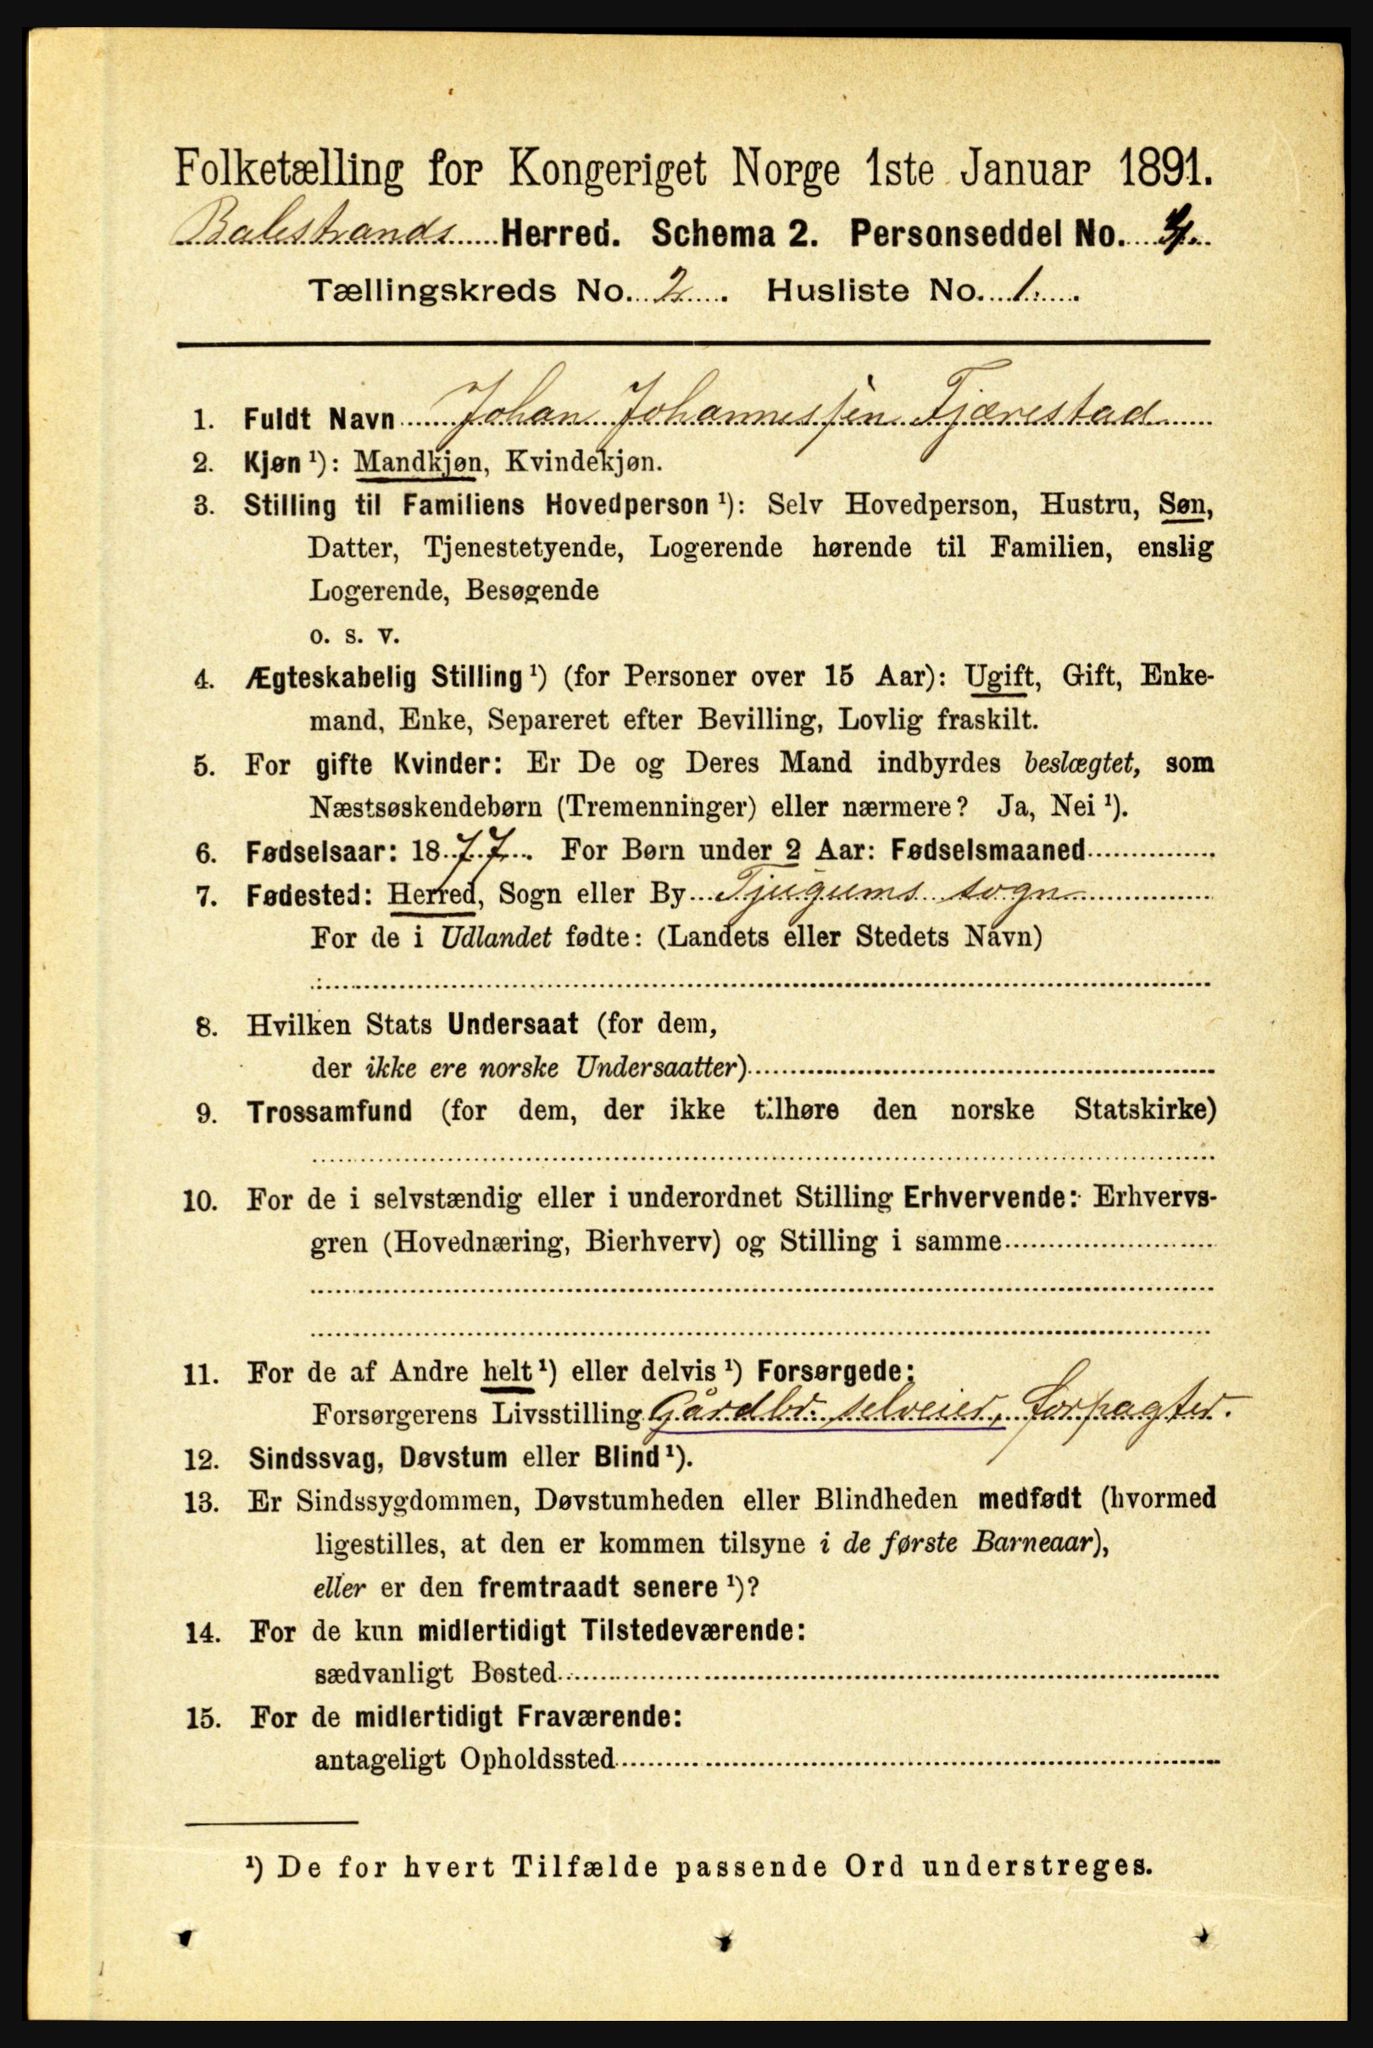 Folketælling for Kongeriget Norge 1ste Januar 1891.
Balestrands Herred. Schema 2. Personseddel No. 4.
Tællingskreds No. 2. Husliste No. 1.
1. Fuldt Navn Johan Johannessen Tjærestad
2. Kjøn ¹): Mandkjøn, Kvindekjøn.
3. Stilling til Familiens Hovedperson ¹): Selv Hovedperson, Hustru, Søn,
Datter, Tjenestetyende, Logerende hørende til Familien, enslig
Logerende, Besøgende
o. s. v.
4. Ægteskabelig Stilling ¹) (for Personer over 15 Aar): Ugift, Gift, Enke-
mand, Enke, Separeret efter Bevilling, Lovlig fraskilt.
5. For gifte Kvinder: Er De og Deres Mand indbyrdes beslægtet, som
Næstsøskendebørn (Tremenninger) eller nærmere? Ja, Nei ¹).
6. Fødselsaar: 1877. For Børn under 2 Aar: Fødselsmaaned
7. Fødested: Herred, Sogn eller By Tjugums sogn
For de i Udlandet fødte: (Landets eller Stedets Navn)
8. Hvilken Stats Undersaat (for dem,
der ikke ere norske Undersaatter)
9. Trossamfund (for dem, der ikke tilhøre den norske Statskirke)
10. For de i selvstændig eller i underordnet Stilling Erhvervende: Erhvervs-
gren (Hovednæring, Bierhverv) og Stilling i samme
11. For de af Andre helt ¹) eller delvis ¹) Forsørgede:
Forsørgerens Livsstilling Gårdbr. selveier, forpagter.
12. Sindssvag, Døvstum eller Blind ¹).
13. Er Sindssygdommen, Døvstumheden eller Blindheden medfødt (hvormed
ligestilles, at den er kommen tilsyne i de første Barneaar),
eller er den fremtraadt senere ¹)?
14. For de kun midlertidigt Tilstedeværende:
sædvanligt Bosted
15. For de midlertidigt Fraværende:
antageligt Opholdssted
¹) De for hvert Tilfælde passende Ord understreges.